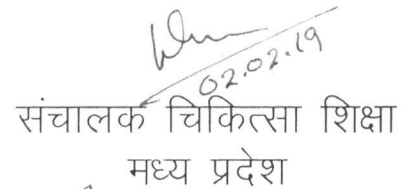 02.02.19
संचालक चिकित्सा शिक्षा
मध्य प्रदेश